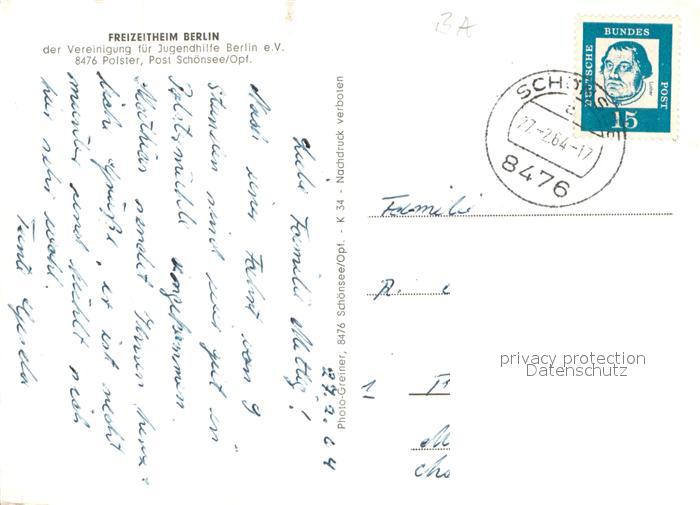 FREIZEITHEIM BERLIN
der Vereinigung für Jugendhilfe Berlin e.V.
8476 Polster, Post Schönsee/Opf.
27.2.64
Liebe Familie !
Nach einer Fahrt von 9
Stunden sind wir gut in
angekommen.
Mathias sendet Ihnen herz-
liche Grüße, er ist recht
munter und fühlt sich
hier sehr wohl.
Tante Gerda
Photo-Greiner, 8476 Schönsee/Opf. - K 34 - Nachdruck verboten
BA
DEUTSCHE BUNDESPOST
Luther
15
SCHÖNSEE
a
27.-2.64-17
8476
Familie
R.
1
privacy protection
Datenschutz